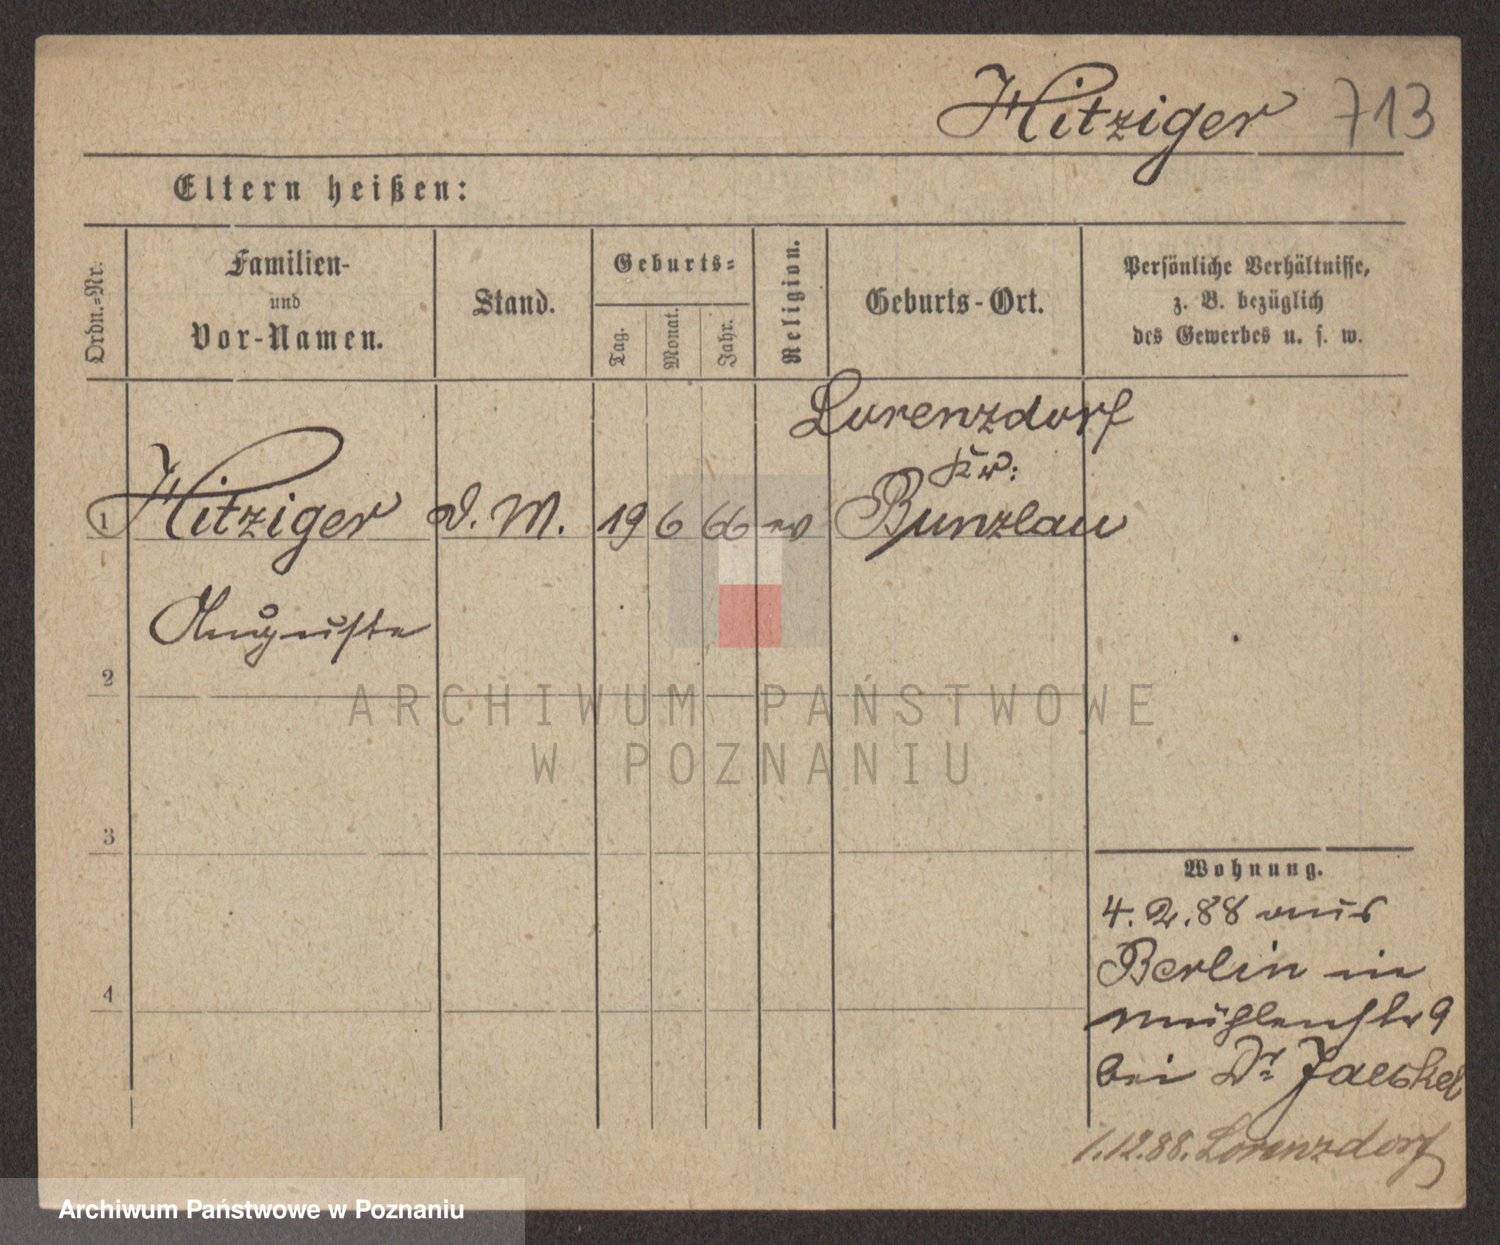 Hitziger 713
Eltern heißen:
Ordn.-Nr.
Familien-
und
Vor-Namen.
Stand.
Geburts-
Tag.
Monat.
Jahr.
Religion.
Geburts-Ort.
Persönliche Verhältnisse,
z. B. bezüglich
des Gewerbes u. s. w.
Lorenzdorf
Kr:
1 Hitziger D. M. 19 6 66 ev Bunzlau
Auguste
2
3
4
Wohnung.
4. 2. 88 aus
Berlin in
Mühlenstr 9
bei Dr Jaeckel
1.12.88. Lorenzdorf
ARCHIWUM PAŃSTWOWE
W POZNANIU
Archiwum Państwowe w Poznaniu